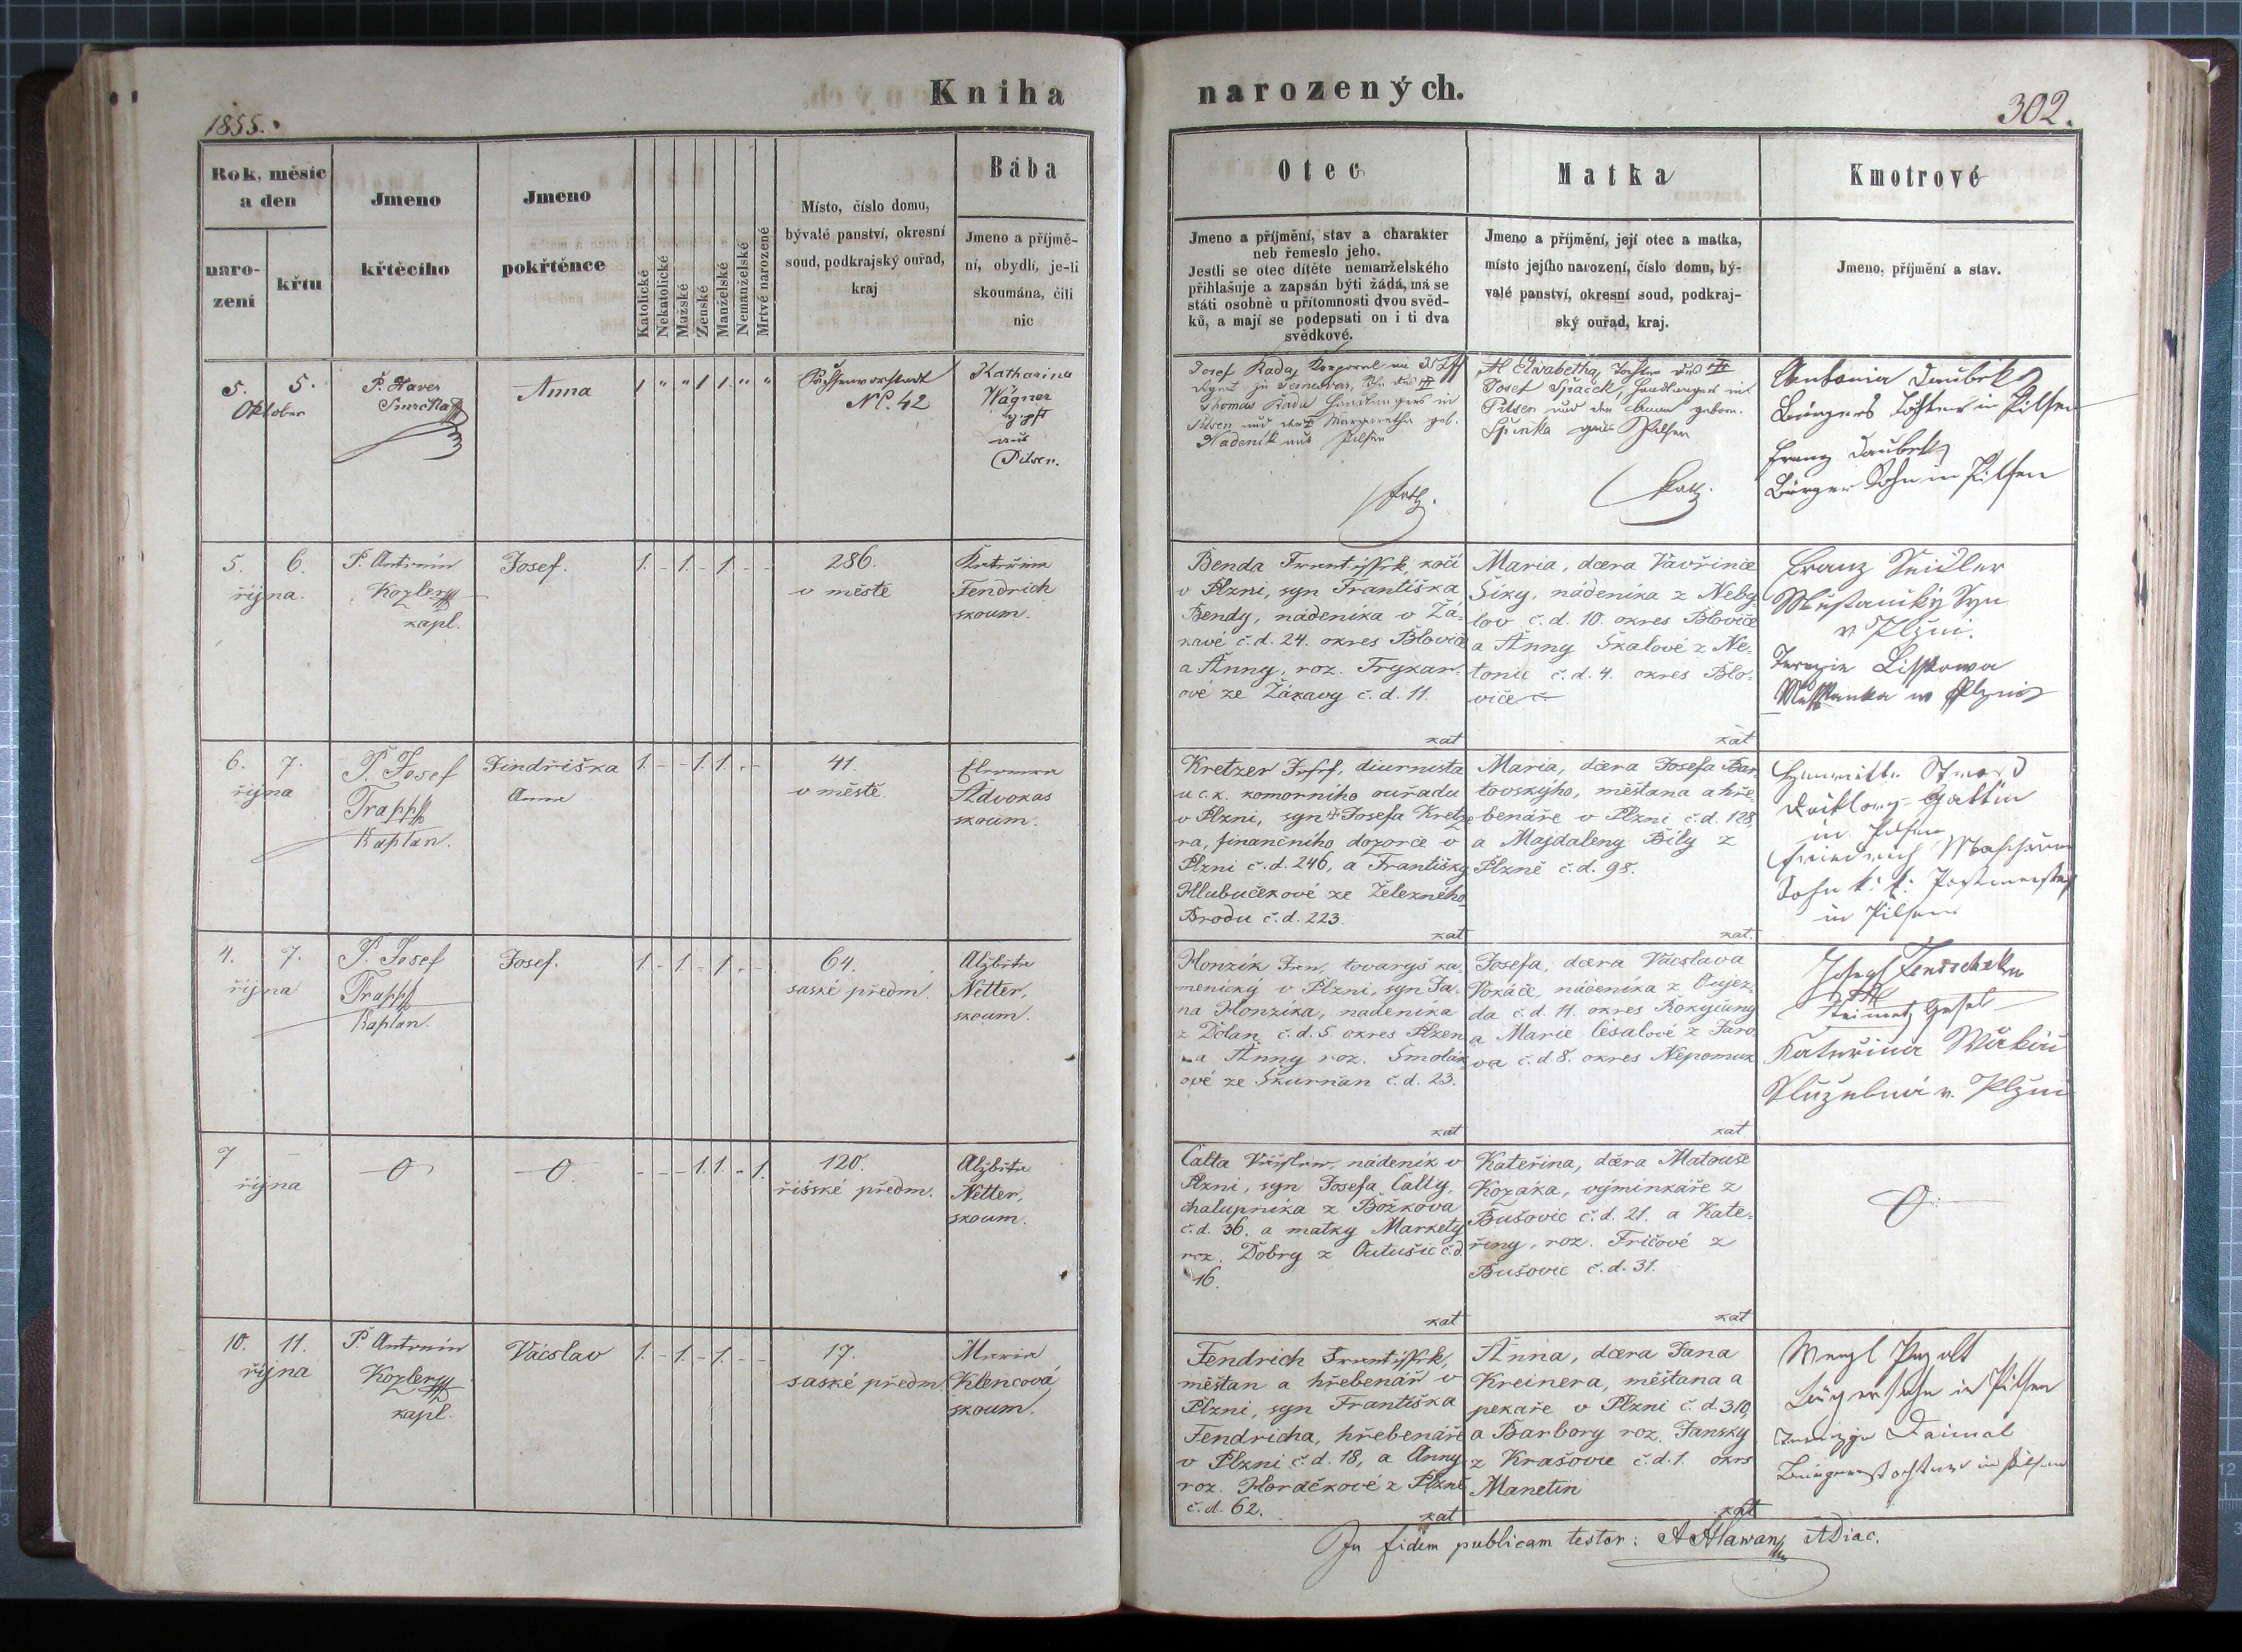 Kniha
narozených.
1855.
302.
Rok, měsíc
a den
naro-
zení
křtu
Jmeno
křtěcího
Jmeno
pokřtěnce
Katolické
Nekatolické
Mužské
Ženské
Manželské
Nemanželské
Mrtvé narozené
Místo, číslo domu,
bývalé panství, okresní
soud, podkrajský ouřad,
kraj
Bába
Jmeno a příjmě-
ní, obydlí, je-li
skoumána, čili
nic
Otec
Jmeno a příjmění, stav a charakter
neb řemeslo jeho.
Jestli se otec dítěte nemanželského
přihlašuje a zapsán býti žádá, má se
státi osobně u přítomnosti dvou svěd-
ků, a mají se podepsati on i ti dva
svědkové.
Matka
Jmeno a příjmění, její otec a matka,
místo jejího narození, číslo domu, bý-
valé panství, okresní soud, podkraj-
ský ouřad, kraj.
Kmotrové
Jmeno, příjmění a stav.
5. 5.
Oktober
P. Xaver
Smrčka
Anna
1 " " 1 1 " "
Sächsenvorstadt
NC. 42
Katharina
Wágner
gepft
aus
Pilsen.
Josef Rada, Korporal
Thomas Rada Handlangers in
Pilsen und der Margaretha geb.
Nadeník aus Pilsen
kath.
Elisabetha, Tochter des
Josef Špaček, Handlangers in
Pilsen und der Anna geborn.
Špinka aus Pilsen
kath.
Antonia Daubek
Bürgers Tochter in Pilsen
Franz Daubek
Bürger Sohn in Pilsen
5. 6.
října.
P. Antonín
Kozler
kapl.
Josef.
1. - 1. - 1. - -
286.
v městě
Kateřina
Fendrich
skoum.
Benda František, kočí
v Plzni, syn Františka
Bendy, nádeníka v Žá-
kavé č.d. 24. okres Blovice
a Anny, roz. Trykar-
ové ze Žákavy č.d. 11.
kat
Maria, dcera Vavřince
Šiky, nádeníka z Neby-
lov č.d. 10. okres Blovice
a Anny Skalové z Ne-
tonic č.d. 4. okres Blo-
vice
kat
Franz Seidler
Měštanský Syn
v Plzni.
Terezie Lisskowa
Messtanka w Plzni
6. 7.
října
P. Josef
Trapp
Kaplan.
Jindřiška
Anna
1. - - 1. 1. - -
41.
v městě.
Eleonora
Advokas
skoum.
Kretzer Josef, diurnista
u c.k. komorního ouřadu
v Plzni, syn † Josefa Kretze-
ra, finančního dozorce v
Plzni č.d. 246, a Františky
Hlubučkové ze Železného
Brodu č.d. 223.
kat
Maria, dcera Josefa Bar-
tovskýho, měštana a hře-
benáře v Plzni č.d. 128,
a Majdaleny Bíly z
Plzně č.d. 98.
kat.
Gattin
in Pilsen
Friedrich
Sohn k: k: Postmeisters
in Pilsen
4. 7.
října
P. Josef
Trapp
Kaplan.
Josef.
1. - 1. - 1. - -
64.
saské předm.
Alžběta
Netter,
skoum.
Honzík Jan, tovaryš ka-
menický v Plzni, syn Ja-
na Honzíka, nadeníka
z Dolan č.d. 5. okres Plzen
a Anny roz. Smolák-
ové ze Skurňan č.d. 23.
kat
Josefa, dcera Václava
Vokáče, nádeníka z Oujez-
da č.d. 11. okres Rokyčany
a Marie Césalové z Jaro-
va č.d. 8. okres Nepomuk
kat
Josef
Kateřina
Služebná v Plzni
7 -
října
O
O
- - - 1. 1. - 1.
120.
říšské předm.
Alžběta
Netter,
skoum.
Calta Václav, nádeník v
Plzni, syn Josefa Calty,
chalupníka z Božkova
č.d. 36. a matky Markety
roz. Dobry z Outušic č.d.
16.
kat
Kateřina, dcera Matouše
Kozáka, výminkáře z
Bušovic č.d. 21. a Kate-
řiny, roz. Fričové z
Bušovic č.d. 31.
kat
O
10. 11.
října
P. Antonín
Kozler
kapl.
Václav
1. - 1. - 1. - -
17.
saské předm.
Marie
Klencová,
skoum.
Fendrich František,
měštan a hřebenář v
Plzni, syn Františka
Fendricha, hřebenáře
v Plzni č.d. 18, a Anny
roz. Horáčkové z Plzně
č.d. 62.
kat
Anna, dcera Jana
Kreinera, měštana a
pekaře v Plzni č.d. 310,
a Barbory roz. Jansky
z Krašovic č.d. 1. okrs
Manetin
kat
Bürgerssohn in Pilsen
Bürgerstochter in Pilsen
In fidem publicam testor: A Hlawan ADiac.